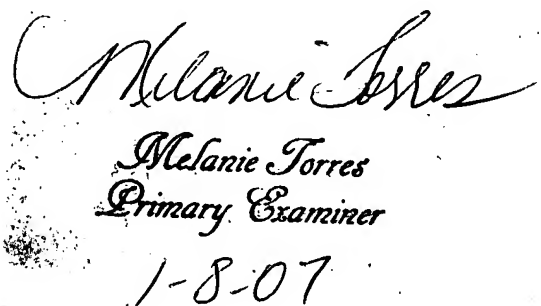 Melanie Torres
Melanie Torres
Primary Examiner
1-8-07